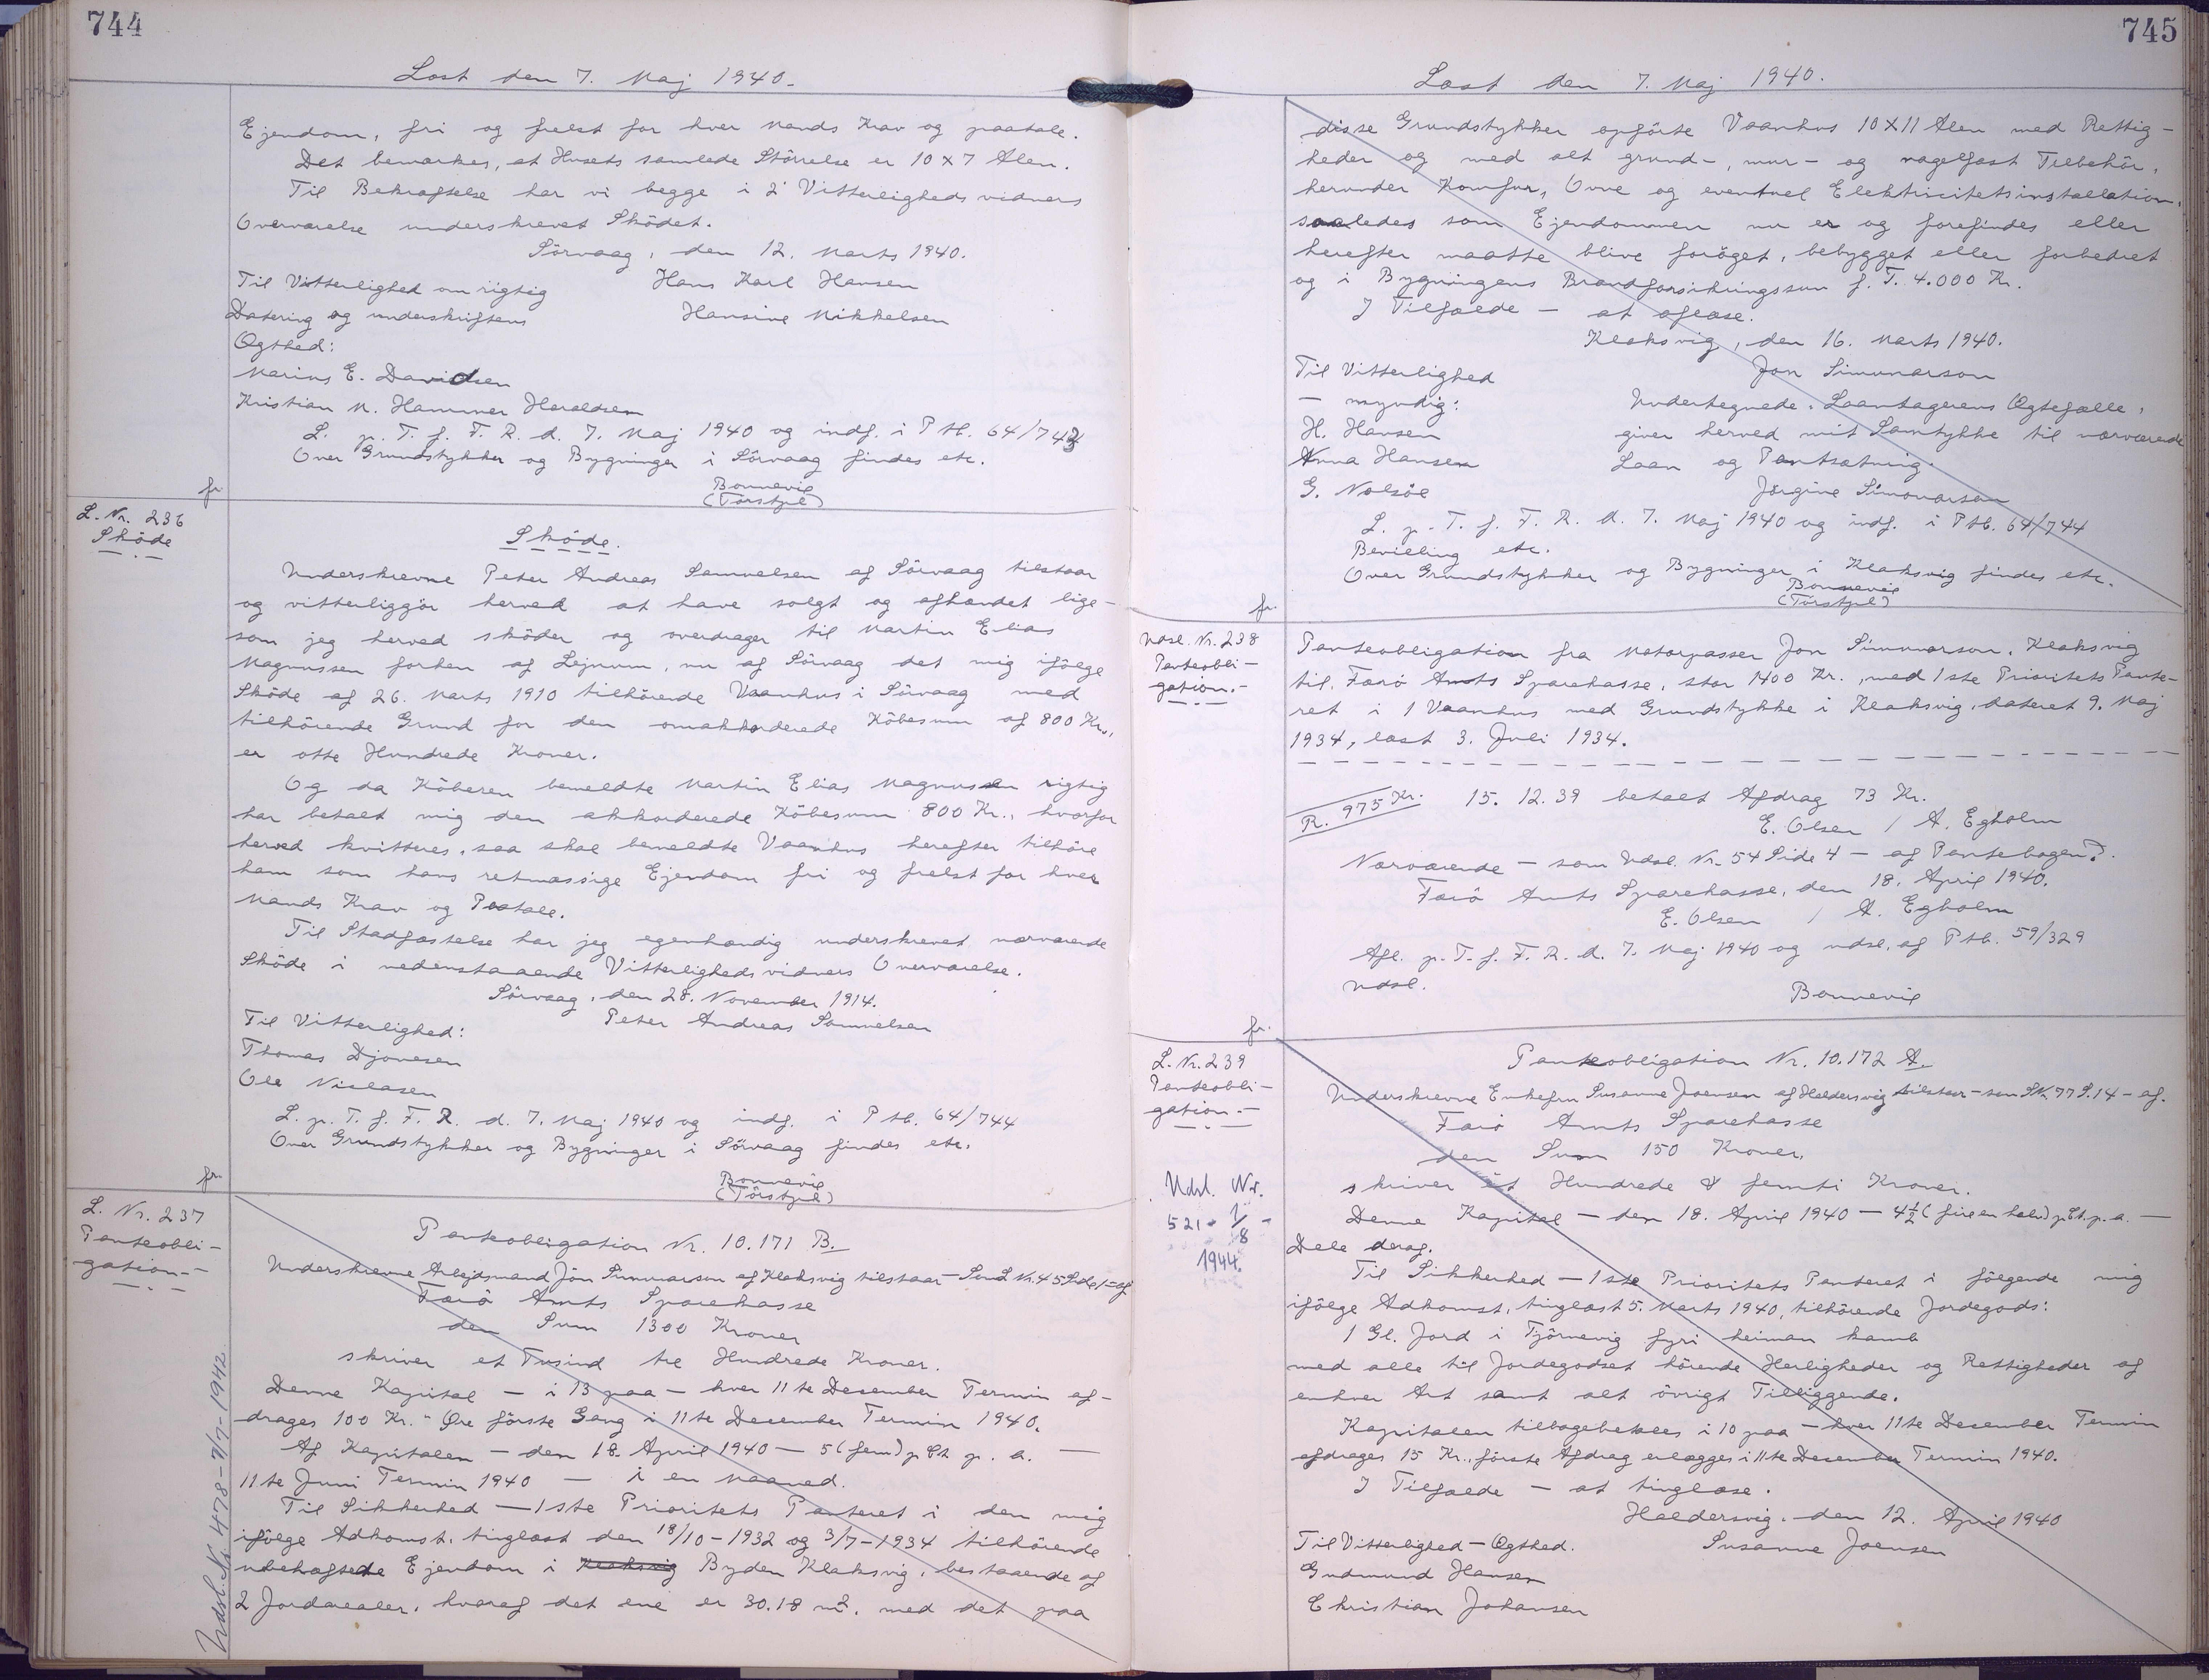 744
Læst den 7. Maj 1940.
Ejendom, fri og frelst for hver Mands Krav og paatale.
Det bemærkes, at Husets samlede Störrelse er 10 X 7 Alen.
Til Bekræftelse har vi begge i 2 Vitterligheds vidners
Overværelse underskrevet Sködet.
Sörvaag, den 12. Marts 1940.
Til Vitterlighed om rigtig Hans Karl Hansen
Datering og underskriftens Hansine Mikkelsen
Ægthed:
Marius E. Davidsen
Kristian M. Hammer Heraldsen
L. p. T. f. F. R. d. 7. Maj 1940 og indf. i Ptb. 64/743
Over Grundstykker og Bygninger i Sörvaag findes etc.
Bonnevie
(Törstpl)
fr.
L. Nr. 236
Sköde
Sköde.
Underskrevne Peter Andreas Samuelsen af Sörvaag tilstaar
og vitterliggör herved at have solgt og afhændet lige-
som jeg herved sköder og overdrager til Martin Elias
Magnussen forhen af Lejnum, nu af Sörvaag det mig ifölge
Sköde af 26. Marts 1910 tilhörende Vaanhus i Sörvaag med
tilhörende Grund for den omakkorderede Köbesum af 800 Kr.,
er otte Hundrede Kroner.
Og da Köberen bemeldte Martin Elias Magnussen rigtig
har betalt mig den akkorderede Köbesum 800 Kr., hvorfor
herved kvitteres, saa skal bemeldte Vaanhus herefter tilhöre
ham som hans retmæssige Ejendom fri og frelst for hver
Mands Krav og Paatale.
Til Stadfæstelse har jeg egenhændig underskrevet nærværende
Sköde i nedenstaaende Vitterligheds vidners Overværelse.
Sörvaag, den 28. November 1914.
Til Vitterlighed: Peter Andreas Samuelsen
Thomas Djonesen
Ole Niclasen
L. p. T. f. F. R. d. 7. Maj 1940 og indf. i Ptb. 64/744
Over Grundstykker og Bygninger i Sörvaag findes etc.
Bonnevie
(Törstpl)
fr.
L. Nr. 237
Panteobli-
gation.-
Panteobligation Nr. 10.171 B.
Underskrevne Arbejdsmand Jön Simunarson af Klaksvig tilstaar - Som L Nr. 45 Side 1 - af
Færö Amts Sparekasse
den Sum 1300 Kroner
skriver et Tusind tre Hundrede Kroner.
Denne Kapital - i 13 paa - hver 11te Desember Termin af-
drages 100 Kr. " Øre förste Gang i 11te Desember Termin 1940.
Af Kapitalen - den 18. April 1940 - 5 (fem) pCt p. a. -
11te Juni Termin 1940 - i en Maaned.
Til Sikkerhed - 1ste Prioritets Panteret i den mig
ifölge Adkomst, tinglæst den 18/10-1932 og 3/7-1934 tilhörende
ubehæftede Ejendom i Klaksvig Byden Klaksvig, bestaaende af
2 Jordarealer, hvoraf det ene er 30.18 m2, med det paa
Udsl. Nr. 478 - 7/7-1942
745
Læst den 7. Maj 1940.
disse Grundstykker opförte Vaanhus 10X11 Alen med Rettig-
heder og med alt grund-, mur- og nagelfast Tilbehör,
herunder Komfur, Ovne og eventuel Elektricitetsinstallation,
saaledes som Ejendommen nu er og forefindes eller
herefter maatte blive foröget, bebygget eller forbedret
og i Bygningens Brandforsikringssum f. T. 4.000 Kr.
I Tilfælde - at aflæse.
Klaksvig, den 16. Marts 1940.
Til Vitterlighed Jon Simunarson
- myndig: Undertegnede, Laantagerens Ægtefælle,
H. Hansen giver herved mit Samtykke til nærværende
Anna Hansen Laan og Pantsætning.
G. Nolsöe Jörgine Simonarson
L. p. T. f. F. R. d. 7. Maj 1940 og indf. i Ptb. 64/744
Bevilling etc.
Over Grundstykker og Bygninger i Klaksvig findes etc.
Bonnevie
(Törstpl)
fr.
Udsl. Nr. 238
Panteobli-
gation.-
Panteobligation fra Motorpasser Jon Simunarson, Klaksvig
til Færö Amts Sparekasse, stor 1400 Kr., med 1ste Prioritets Pante-
ret i 1 Vaanhus med Grundstykke i Klaksvig, dateret 9. Maj
1934, læst 3. Juli 1934.
R. 975 Kr. 15. 12. 39 betalt Afdrag 73 Kr.
E. Olsen / A. Egholm
Nærværende - som Udsl. Nr. 54 Side 4 - af Pantebogen?.
Færö Amts Sparekasse, den 18. April 1940.
E. Olsen / A. Egholm
Afl. p. T. f. F. R. d. 7. Maj 1940 og udsl. af Ptb. 59/329
Udsl.
Bonnevie
fr.
L. Nr. 239
Panteobli-
gation.-
Udsl. Nr.
521 - 1/8 -
1944.
Panteobligation Nr. 10.172 A.
Underskrevne Enkefru Susanne Joensen af Haldersvig tilstaar - som L Nr. 77 S. 14 - af.
Færö Amts Sparekasse
den Sum 150 Kroner,
skriver et Hundrede & femti Kroner.
Denne Kapital - den 18. April 1940 - 4 1/2 (fire en halv) pCt. p. a. -
Dele deraf.
Til Sikkerhed - 1ste Prioritets Panteret i fölgende mig
ifölge Adkomst, tinglæst 5. Marts 1940, tilhörende Jordegods:
1 Gl. Jord i Tjörnevig fyri heiman kamb
med alle til Jordegodset hörende Herligheder og Rettigheder af
enhver Art samt alt övrigt Tilliggende.
Kapitalen tilbagebetales i 10 paa - hver 11te Desember Termin
afdrages 15 Kr., förste Afdrag erlægges i 11te Desember Termin 1940.
I Tilfælde - at tinglæse.
Haldersvig, den 12. April 1940
Til Vitterlighed - Ægthed. Susanne Joensen
Gudmund Hansen
Christian Johansen